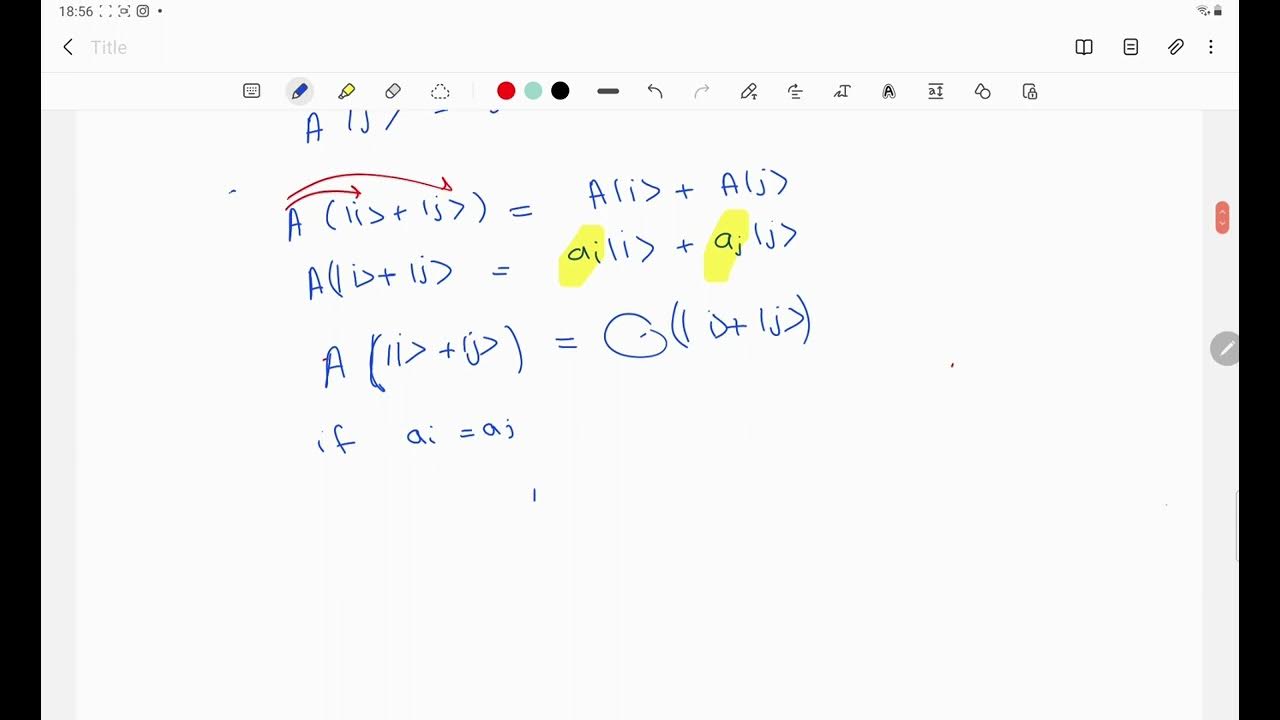 18:56
Title
A |j> =
A (|i> + |j>) = A|i> + A|j>
A(|i> + |j> = ai|i> + aj|j>
A (|i> + |j>) = (|i> + |j>)
if ai = aj